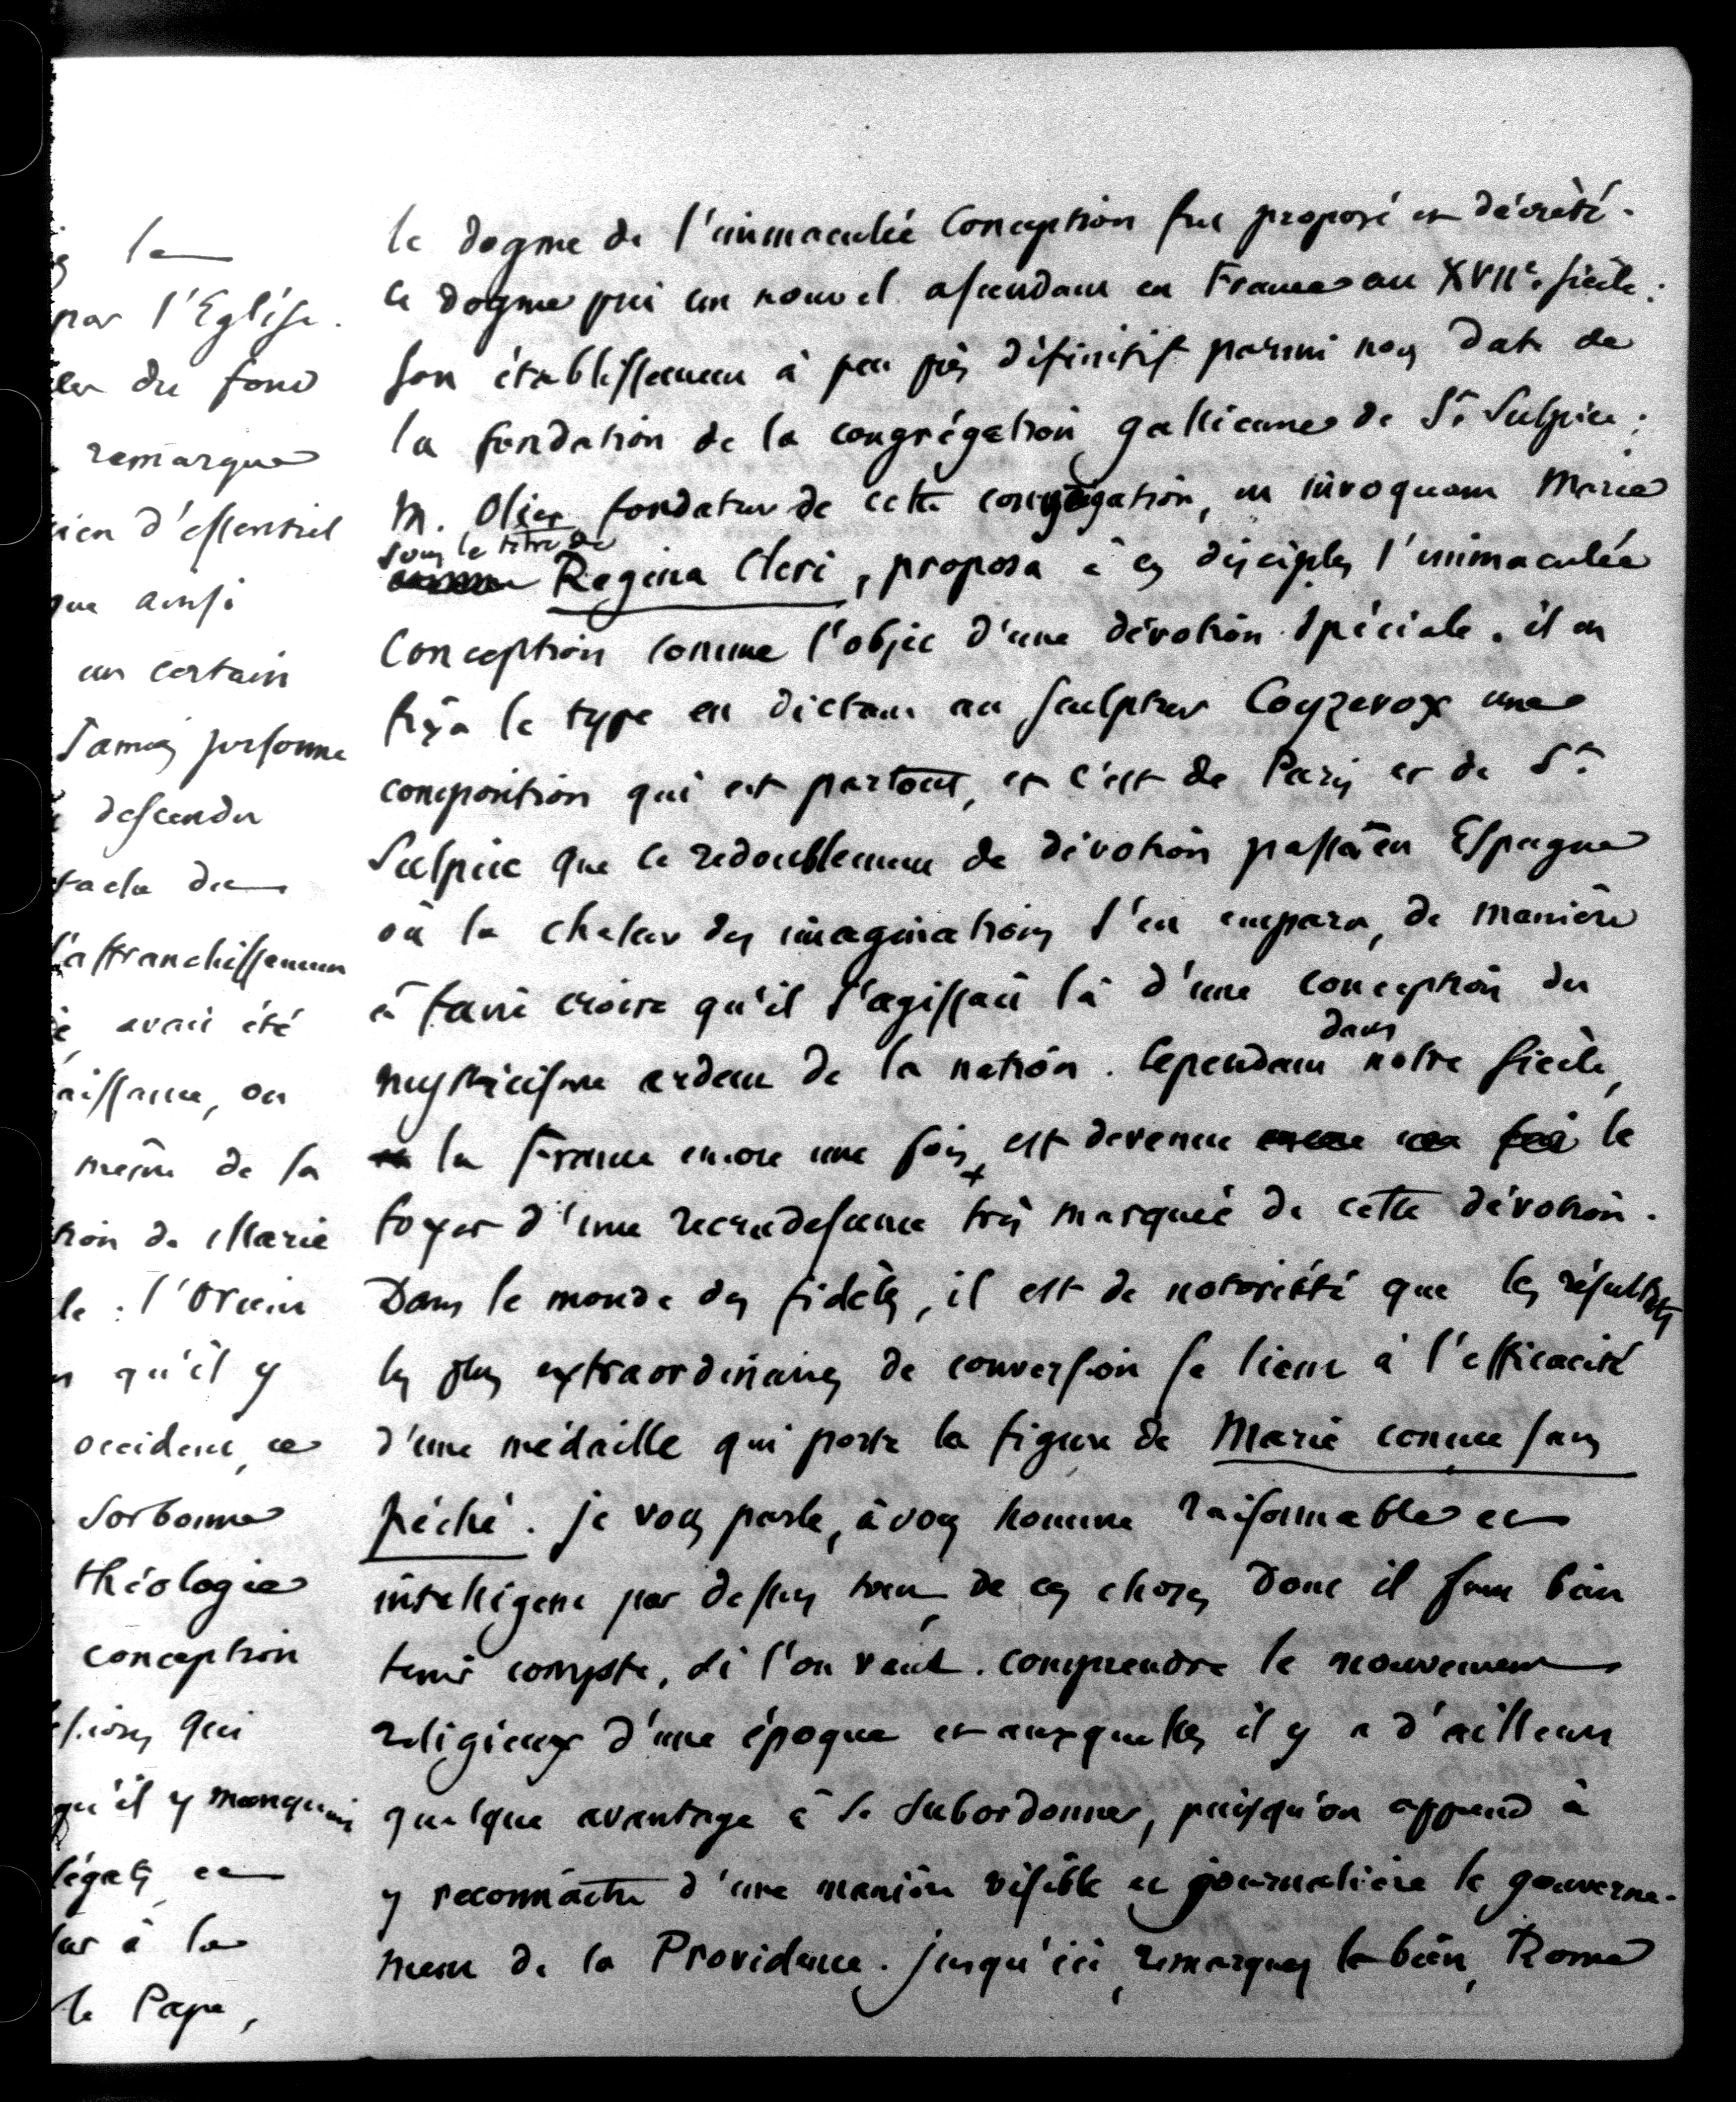 le
par l'Eglise.
du fond
remarque
rien d'essentiel
que ainsi
un certain
jamais personne
descendu
tache du
l'affranchissement
avait été
naissance, on
même de sa
tion de Marie
le : l'Orient
qu'il y
occident, ce
Sorbonne
théologie
conception
qui
qu'il y manquait
légats et
à la
le Pape,
le dogme de l'immaculée Conception fut proposé et décrété.
ce dogme prit un nouvel ascendant en France au XVIIe. siècle :
son établissement à peu près définitif parmi nous date de
la fondation de la congrégation gallicane de St. Sulpice ;
M. Olier fondateur de cette congrégation, en invoquant Marie
sous le titre de
Regina Cleri, proposa à ses disciples l'immaculée
Conception comme l'objet d'une dévotion spéciale. il en
fixa le type en dictant au sculpteur Coyzevox une
composition qui est partout, et c'est de Paris et de St.
Sulpice que ce redoublement de dévotion passa en Espagne
où la chaleur des imaginations s'en empara, de manière
à faire croire qu'il s'agissait là d'une conception du
dans
mysticisme ardent de la nation. Cependant notre siècle,
la France encore une fois, est devenue le
foyer d'une recrudescence très marquée de cette dévotion.
Dans le monde des fidèles, il est de notoriété que les résultats
les plus extraordinaires de conversion se lient à l'efficacité
d'une médaille qui porte la figure de Marie conçue sans
péché. je vous parle, à vous homme raisonnable et
intelligent par dessus tout, de ces choses dont il faut bien
tenir compte, si l'on veut comprendre le mouvement
religieux d'une époque et auxquelles il y a d'ailleurs
quelque avantage à se subordonner, puisqu'on apprend à
y reconnaître d'une manière visible et journalière le gouverne-
ment de la Providence. jusqu'ici, remarquez le bien, Rome